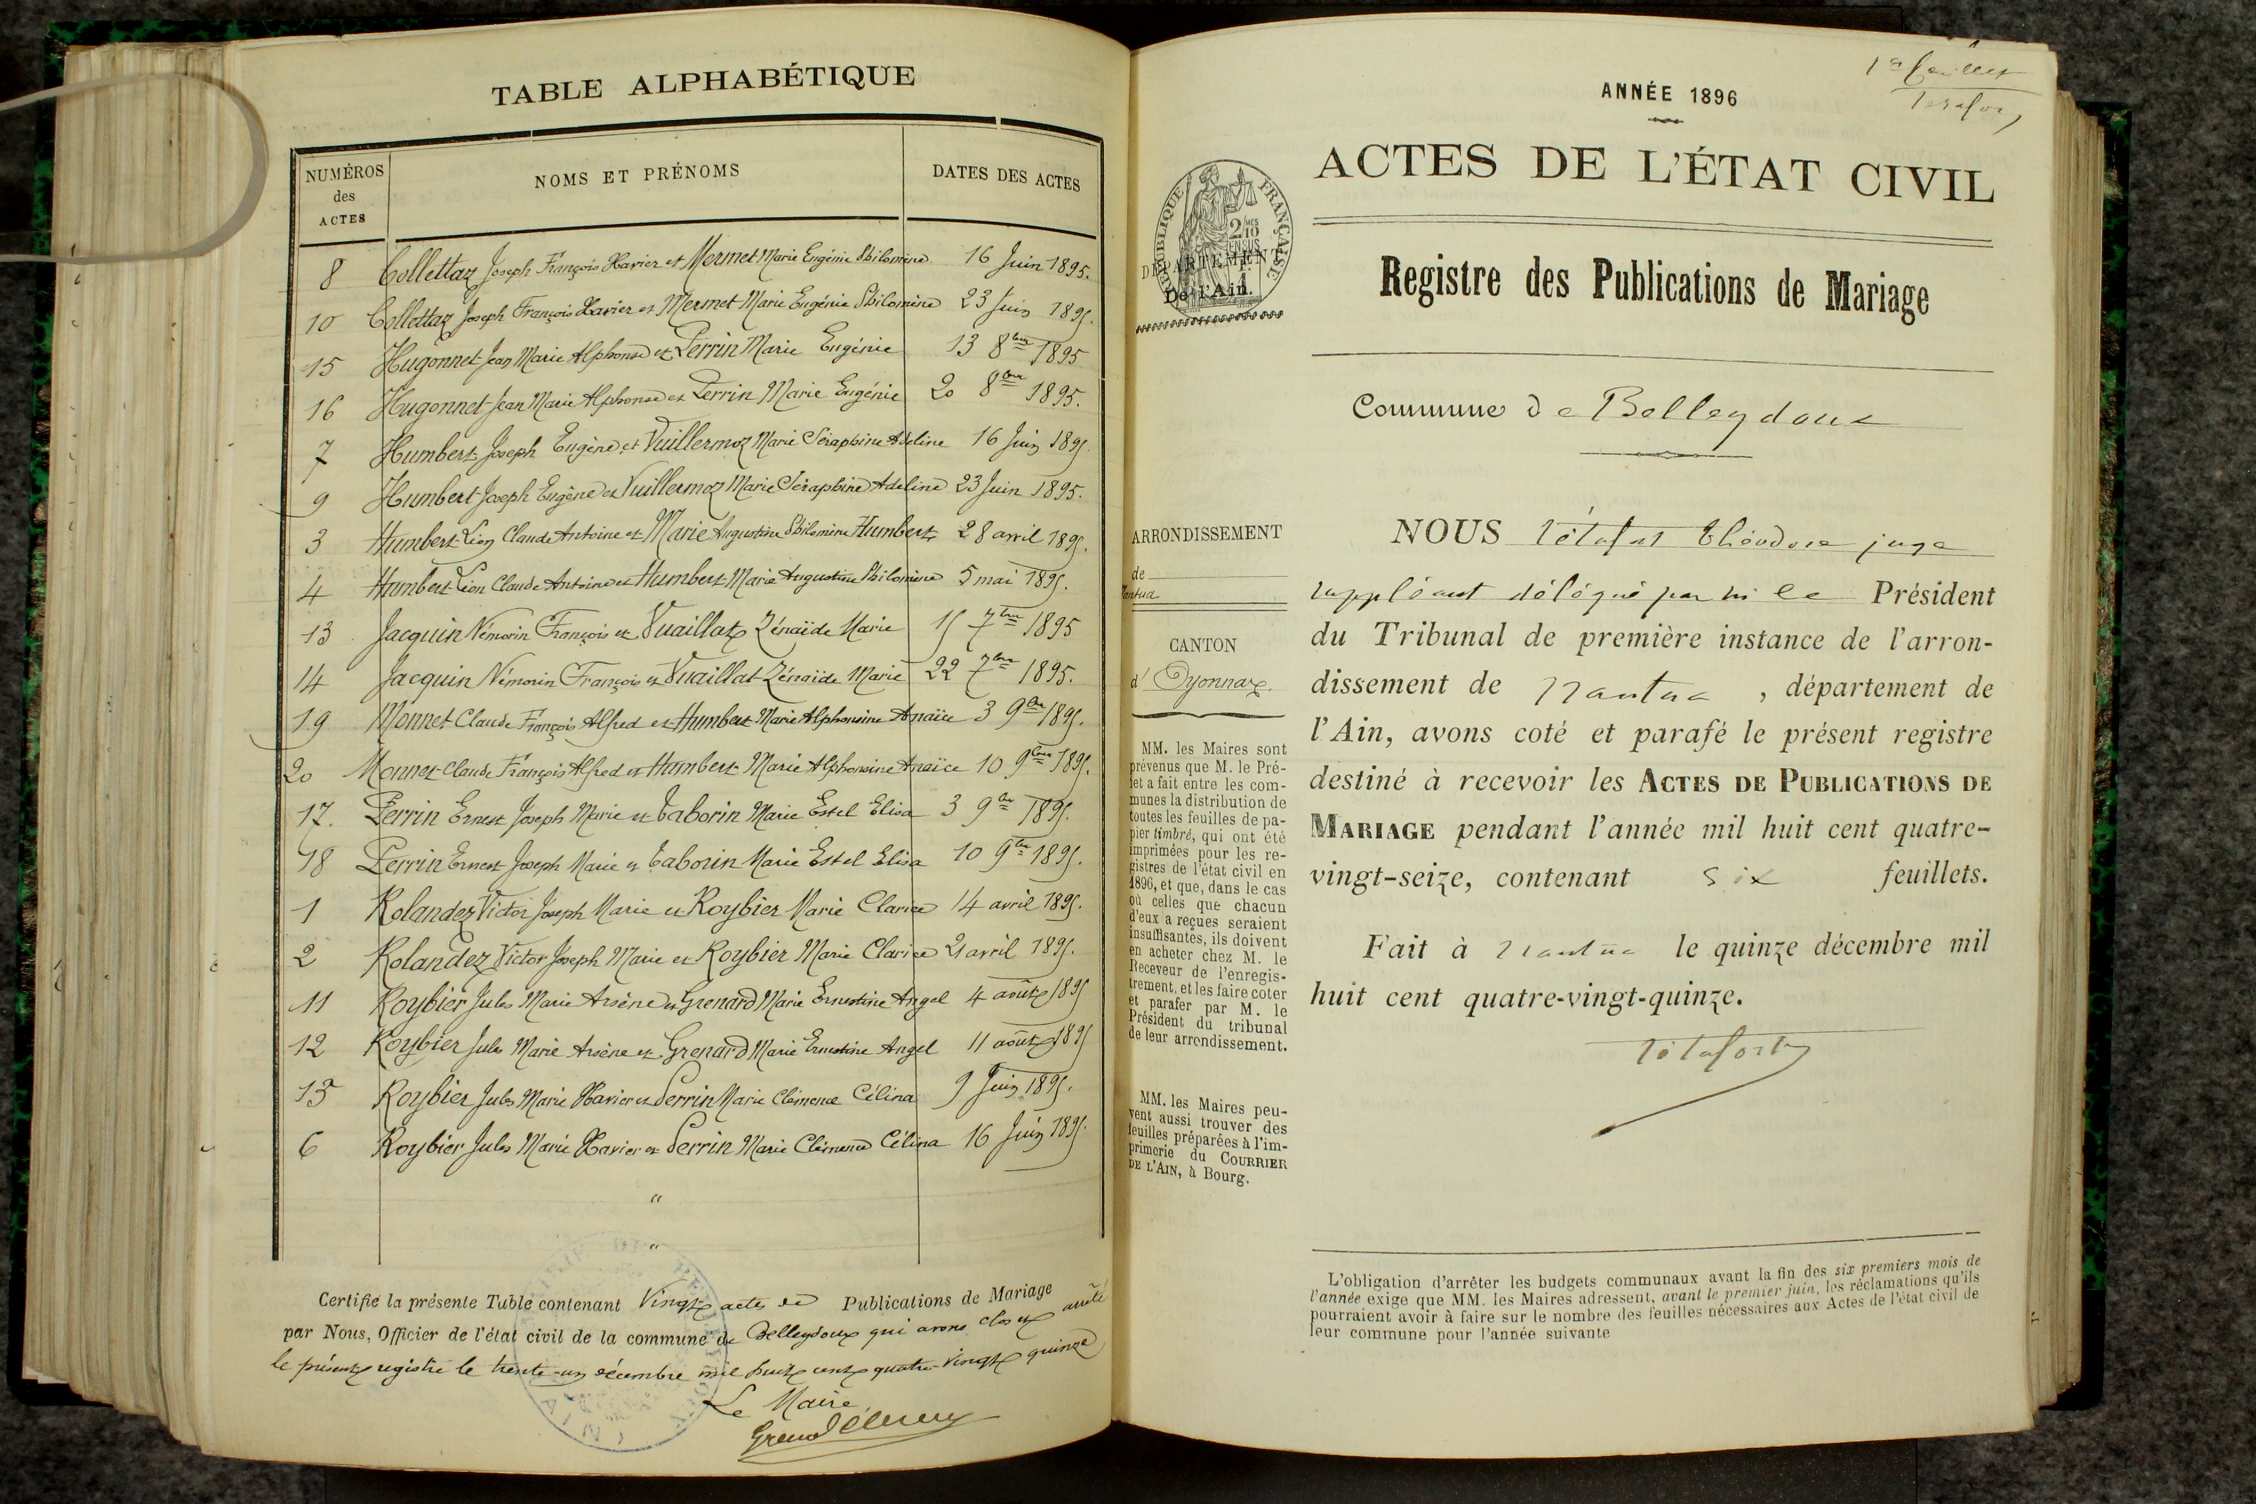 TABLE ALPHABÉTIQUE
NUMÉROS des ACTES
NOMS ET PRÉNOMS
DATES DES ACTES
8 Collettaz Joseph François Xavier et Mermet Marie Eugénie Philomène 16 Juin 1895.
10 Collettaz Joseph François Xavier et Mermet Marie Eugénie Philomène 23 Juin 1895.
15 Hugonnet Jean Marie Alphonse et Perrin Marie Eugénie 13 8bre 1895
16 Hugonnet Jean Marie Alphonse et Perrin Marie Eugénie 20 8bre 1895.
7 Humbert Joseph Eugène et Vuillermoz Marie Séraphine Adeline 16 Juin 1895.
9 Humbert Joseph Eugène et Vuillermoz Marie Séraphine Adeline 23 Juin 1895.
3 Humbert Léon Claude Antoine et Marie Augustine Philomène Humbert 28 avril 1895.
4 Humbert Léon Claude Antoine et Humbert Marie Augustine Philomène 5 mai 1895.
13 Jacquin Némorin François et Vuaillat Zénaïde Marie 15 7bre 1895
14 Jacquin Némorin François et Vuaillat Zénaïde Marie 22 7bre 1895.
19 Monnet Claude François Alfred et Humbert Marie Alphonsine Anaïce 3 9bre 1895.
20 Monnet Claude François Alfred et Humbert Marie Alphonsine Anaïce 10 9bre 1895.
17. Perrin Ernest Joseph Marie et Taborin Marie Estel Elisa 3 9bre 1895.
18 Perrin Ernest Joseph Marie et Taborin Marie Estel Elisa 10 9bre 1895.
1 Rolandez Victor Joseph Marie et Roybier Marie Clarice 14 avril 1895.
2 Rolandez Victor Joseph Marie et Roybier Marie Clarice 21 avril 1895.
11 Roybier Jules Marie Arsène et Grenard Marie Ernestine Angel 4 août 1895
12 Roybier Jules Marie Arsène et Grenard Marie Ernestine Angel 11 août 1895
Roybier Jules Marie Xavier et Perrin Marie Clémence Célina 9 Juin 1895.
6 Roybier Jules Marie Xavier et Perrin Marie Clémence Célina 16 Juin 1895.
"
"
Certifié la présente Table contenant Vingt actes de Publications de Mariage
par Nous, Officier de l'état civil de la commune de Belleydoux qui avons clos et arrêté
le présent registre le trente-un décembre mil huit cent quatre-vingt quinze
Le Maire
1er feuillet
ANNÉE 1896
ACTES DE L'ÉTAT CIVIL
RÉPUBLIQUE FRANÇAISE
DÉPARTEMENT
De l'Ain.
Registre des Publications de Mariage
Commune de Belleydoux
ARRONDISSEMENT
de
Nantua
CANTON
d' Oyonnax.
MM. les Maires sont
prévenus que M. le Pré-
fet a fait entre les com-
munes la distribution de
toutes les feuilles de pa-
pier timbré, qui ont été
imprimées pour les re-
gistres de l'état civil en
1896, et que, dans le cas
où celles que chacun
d'eux a reçues seraient
insuffisantes, ils doivent
en acheter chez M. le
Receveur de l'enregis-
trement, et les faire coter
et parafer par M. le
Président du tribunal
de leur arrondissement.
MM. les Maires peu-
vent aussi trouver des
feuilles préparées à l'im-
primerie du COURRIER
DE L'AIN, à Bourg.
NOUS Tétafort Théodore juge
suppléant délégué par M le Président
du Tribunal de première instance de l'arron-
dissement de Nantua, département de
l'Ain, avons coté et parafé le présent registre
destiné à recevoir les ACTES DE PUBLICATIONS DE
MARIAGE pendant l'année mil huit cent quatre-
vingt-seize, contenant six feuillets.
Fait à Nantua le quinze décembre mil
huit cent quatre-vingt-quinze.
Tétafort
L'obligation d'arrêter les budgets communaux avant la fin des six premiers mois de
l'année exige que MM. les Maires adressent, avant le premier juin, les réclamations qu'ils
pourraient avoir à faire sur le nombre des feuilles nécessaires aux Actes de l'état civil de
leur commune pour l'année suivante